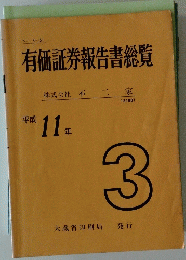 有価証券報告書総覧
株式会社 不二家
平成 11年
3
大蔵省印刷局 発行